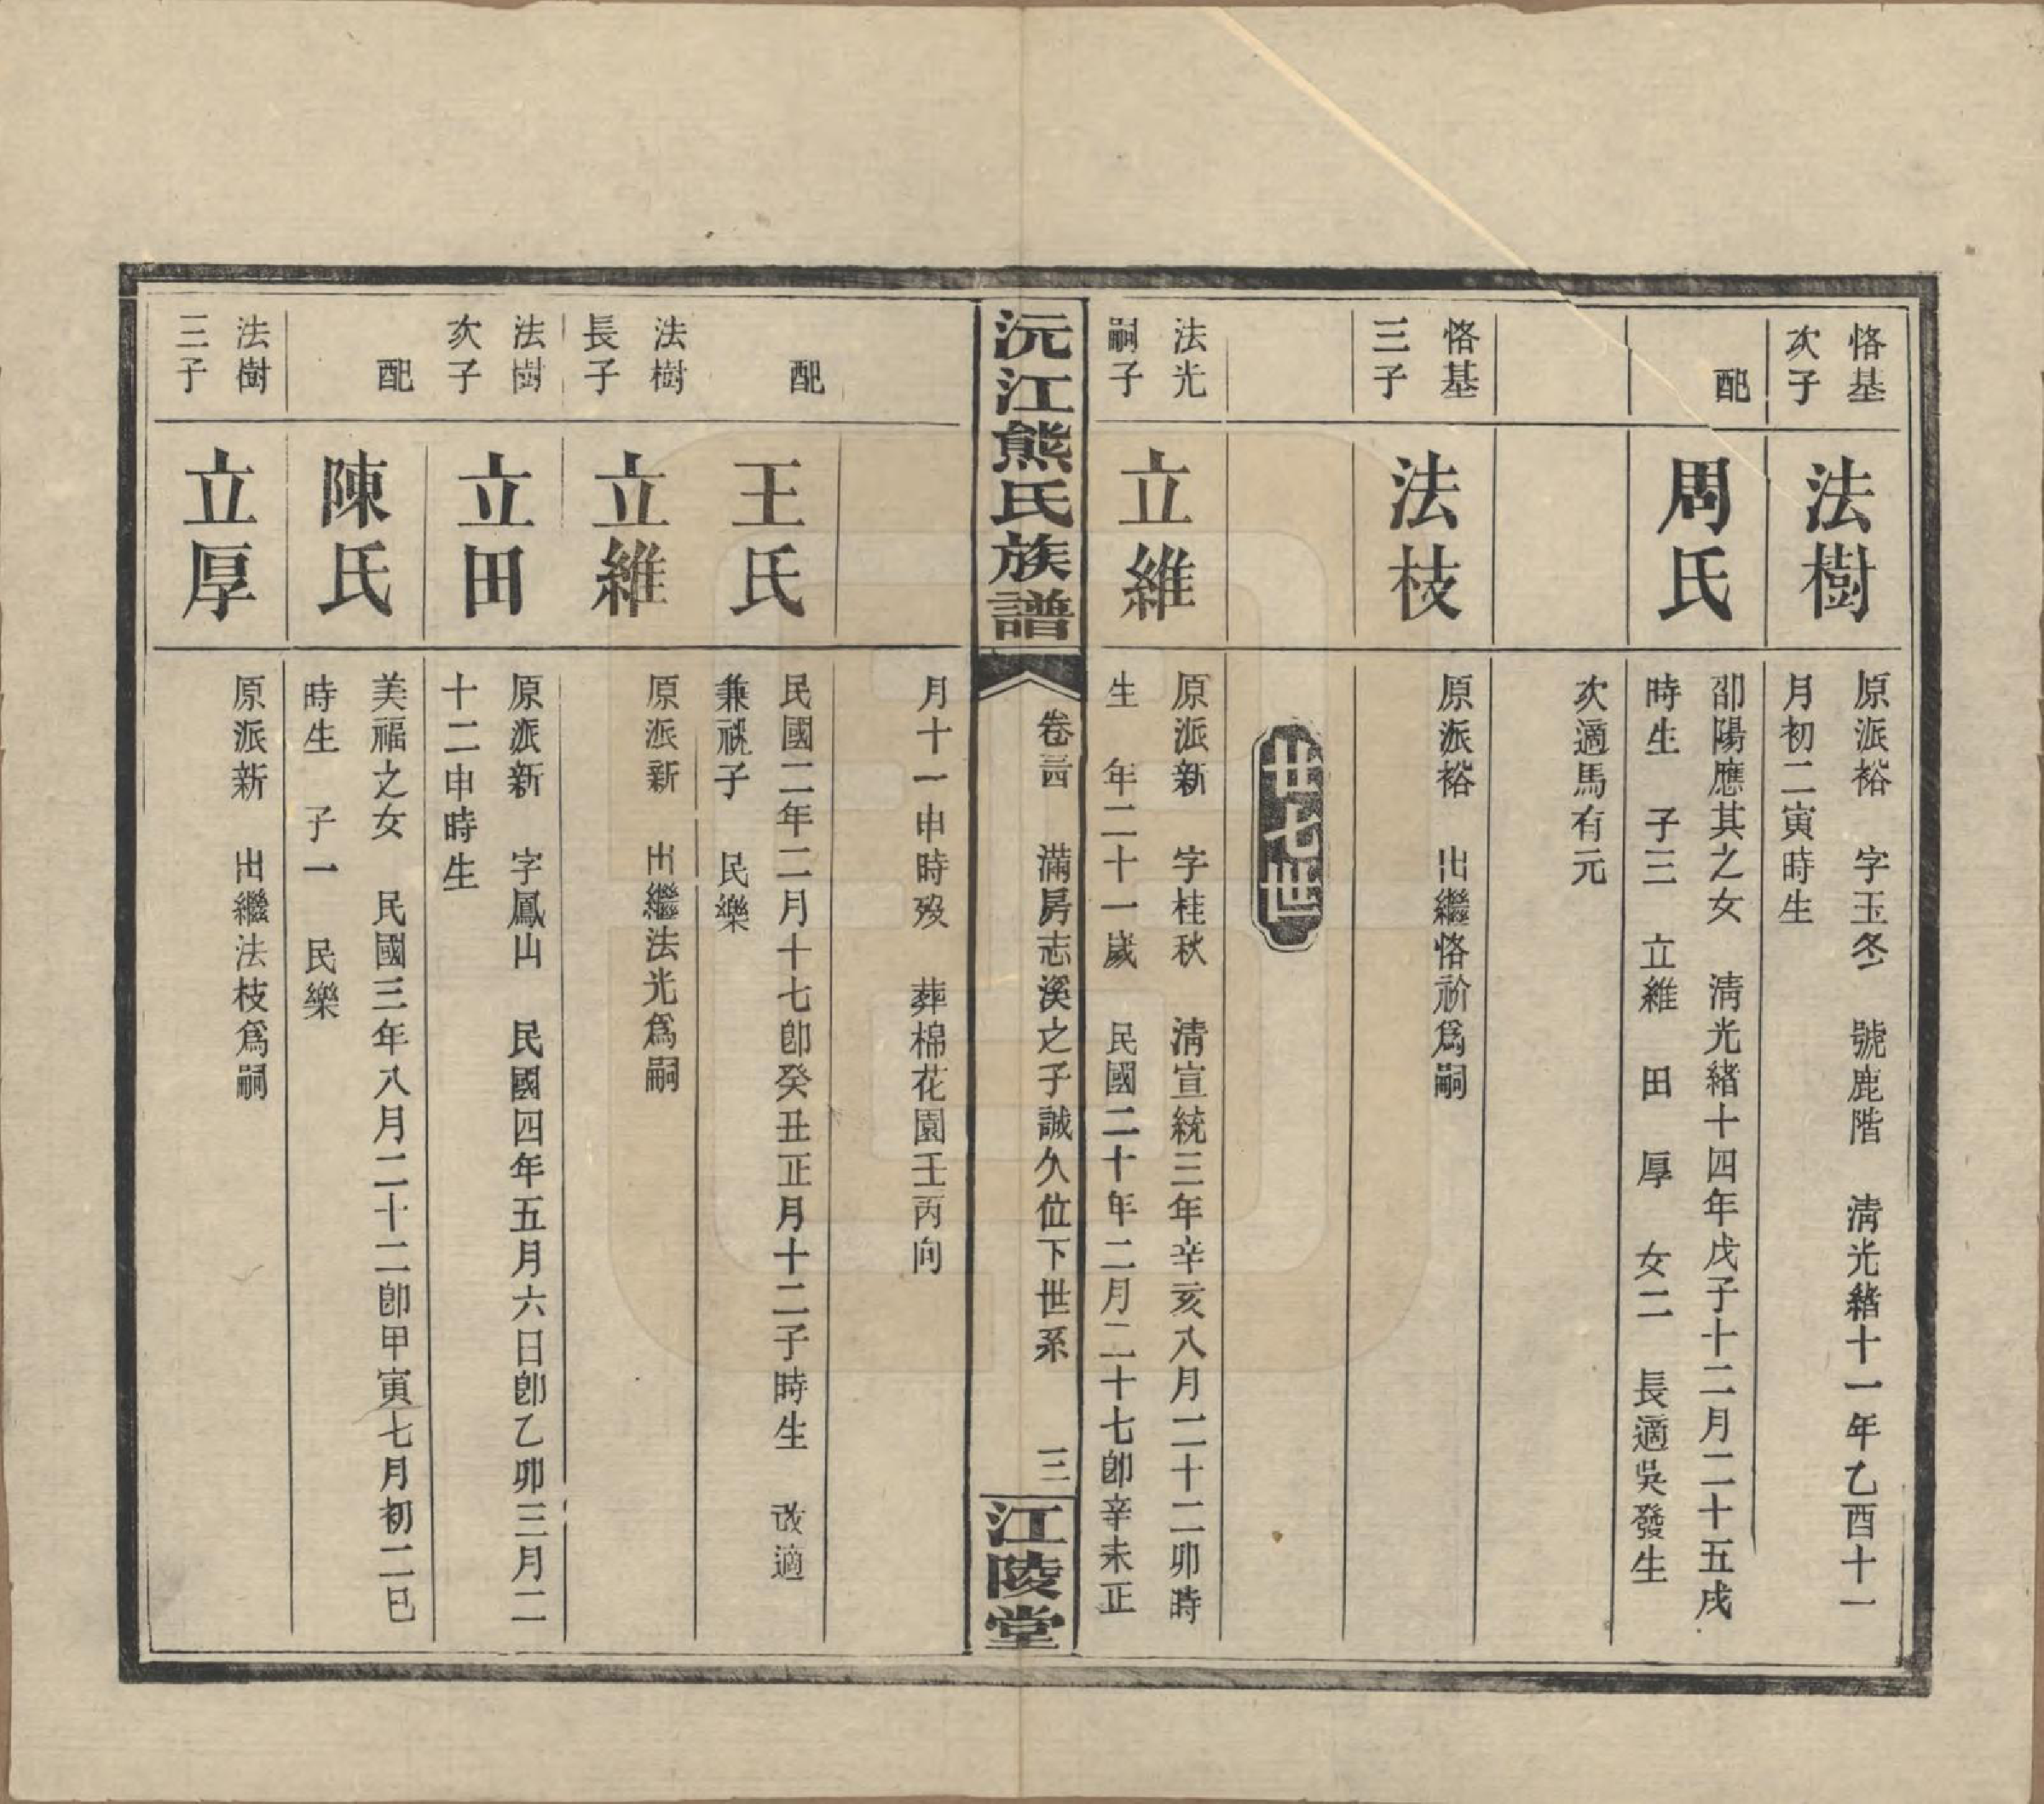 恪基
次子
法樹
原派裕　字玉冬　號鹿階　清光緒十一年乙酉十一
月初二寅時生
配
周氏
邵陽應其之女　清光緒十四年戊子十二月二十五戌
時生　子三　立維　田　厚　女二　長適吳發生
次適馬有元
恪基
三子
法枝
原派裕　出繼恪祄爲嗣
廿七世
法光
嗣子
立維
原派新　字桂秋　清宣統三年辛亥八月二十二卯時
生　年二十一歲　民國二十年二月二十七卽辛未正
沅江熊氏族譜
卷　滿房志溪之子誠久位下世系　三
江陵堂
月十一申時歿　葬棉花園壬丙向
配
王氏
民國二年二月十七卽癸丑正月十二子時生　改適
兼祧子　民樂
法樹
長子
立維
原派新　出繼法光爲嗣
法樹
次子
立田
原派新　字鳳山　民國四年五月六日卽乙卯三月二
十二申時生
配
陳氏
美福之女　民國三年八月二十二卽甲寅七月初二巳
時生　子一　民樂
法樹
三子
立厚
原派新　出繼法枝爲嗣